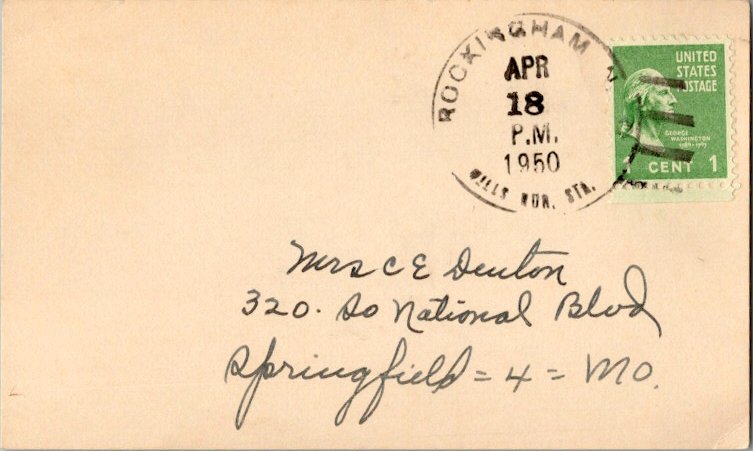 ROCKINGHAM
APR
18
P.M.
1950
RUR. STA.
UNITED
STATES
POSTAGE
GEORGE
WASHINGTON
1789-1797
1 CENT 1
Mrs C E Denton
320. So National Blvd
Springfield = 4 = Mo.